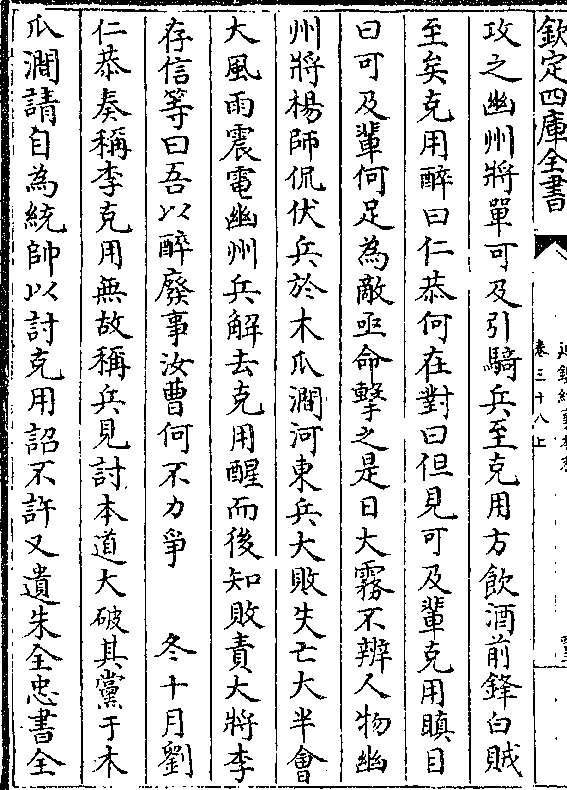 欽定四庫全書
卷三十八上
攻之幽州將單可及引騎兵至克用方飲酒前鋒白賊
至矣克用醉曰仁恭何在對曰但見可及輩克用瞋目
曰可及輩何足為敵亟命擊之是日大霧不辨人物幽
州將楊師侃伏兵於木瓜澗河東兵大敗失亡大半會
大風雨震電幽州兵解去克用醒而後知敗責大將李
存信等曰吾以醉廢事汝曹何不力爭　冬十月劉
仁恭奏稱李克用無故稱兵見討本道大破其黨于木
瓜澗請自為統帥以討克用詔不許又遺朱全忠書全